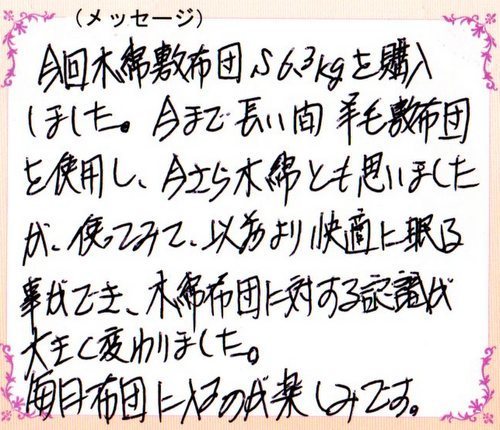 (メッセージ)
今回木綿敷布団S6.3kgを購入
しました。今まで長い間羊毛敷布団
を使用し、今さら木綿とも思いました
が、使ってみて、以前より快適に眠る
事ができ、木綿布団に対する認識が
大きく変わりました。
毎日布団に入るのが楽しみです。